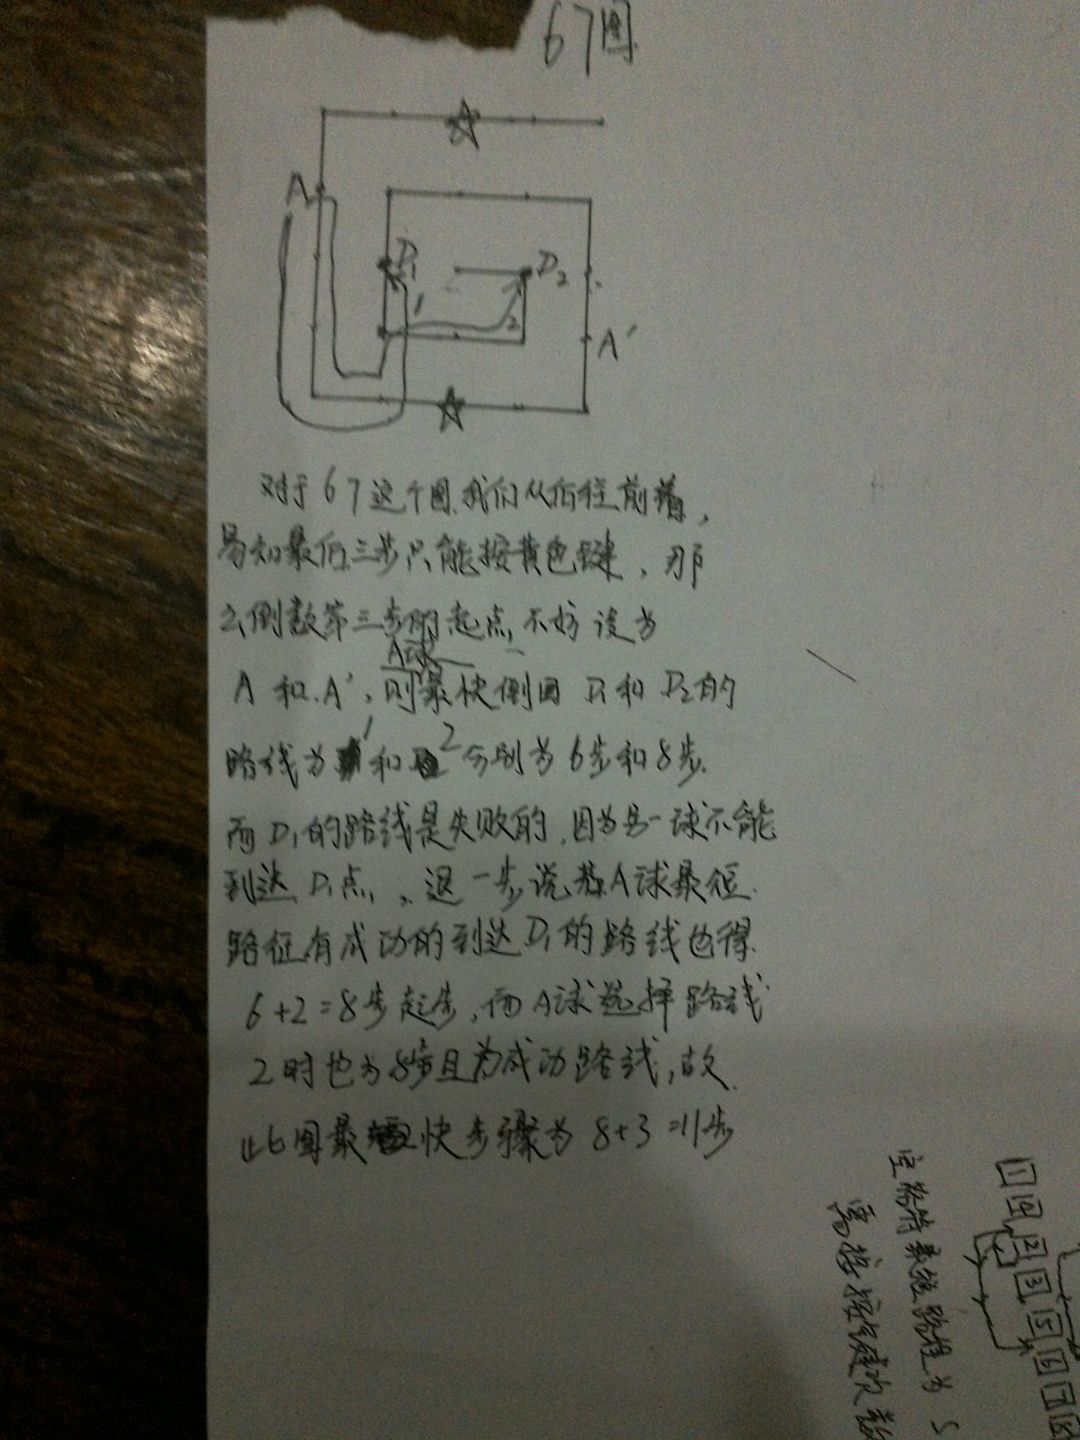 67图
A
D₁
D₂
1
2
A'
对于67这个图.我们从后往前看,
易知最后三步只能按黄色键,那
么倒数第三步的起点,不妨设为
A球
A和A',则最快倒回D₁和D₂的
路线为1和2分别为6步和8步.
而D₁的路线是失败的,因为另一球不能
到达D₁点,退一步说若A球最短
路径有成功的到达D₁的路线也得
6+2=8步起步,而A球选择路线
2时也为8步且为成功路线,故
此图最快步骤为8+3=11步
路径为5
需按键次数
1
2
3
5
6
7
8